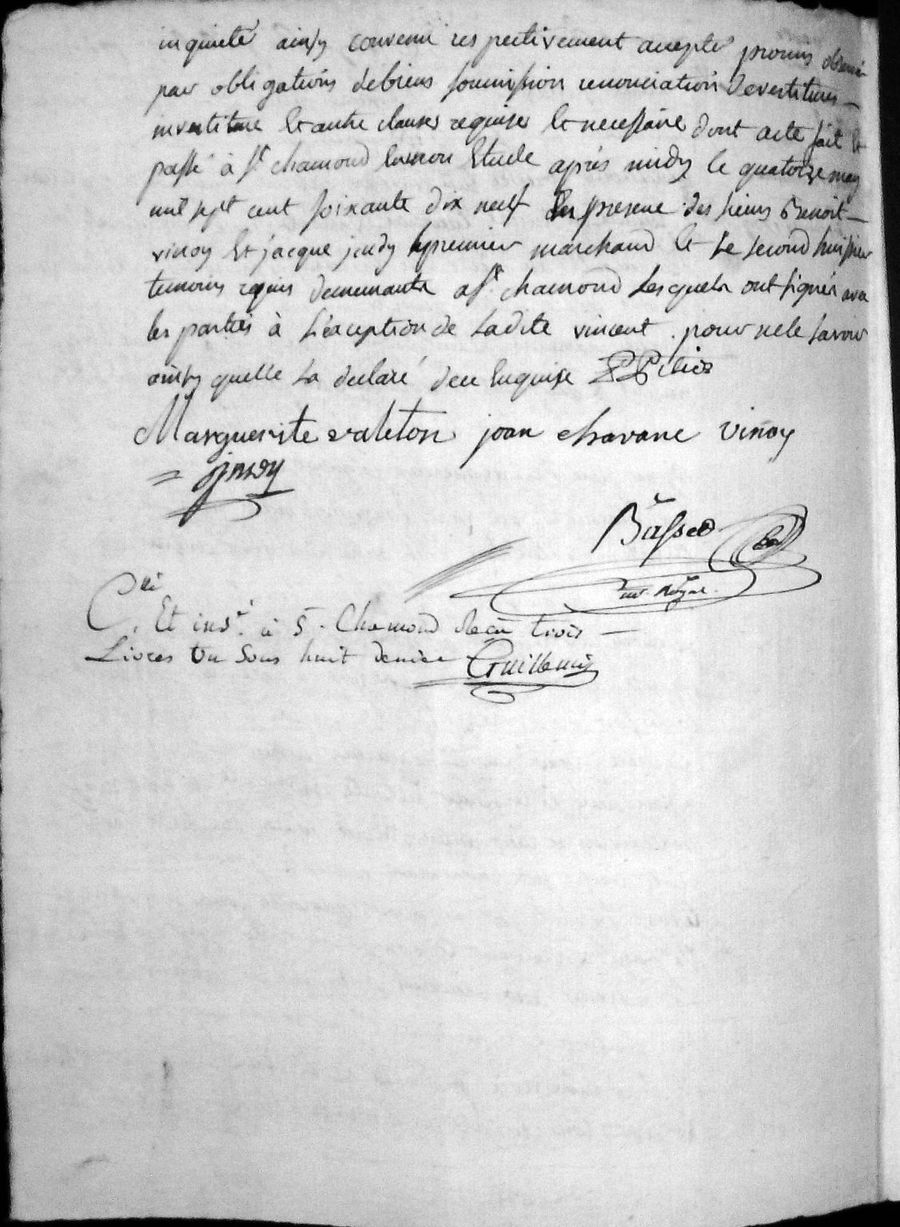 inquieté ainsy convenu respectivement accepté promis observé
par obligations de biens soumission renonciation devestitures
investiture Et autre clauses requises Et necessaire dont acte fait Et
passé à St chamond En mon Etude après midy le quatorze may
mil sept cent soixante dix neuf En presence des sieurs Benoit
vinoy Et jacque jendy le premier marchand Et le second huissier
temoins requis demeurants a St chamond Lesquels ont signés avec
les parties à L'éxception de Ladite vincent pour ne le savoir
ainsy quelle La declaré de ce Enquise
Marguerite valeton joan chavane vinoy
Basset
no. Royal
C.lé
Et insé. à S. Chamond Reçu trois
Livres Un Sous huit denier Guillemin